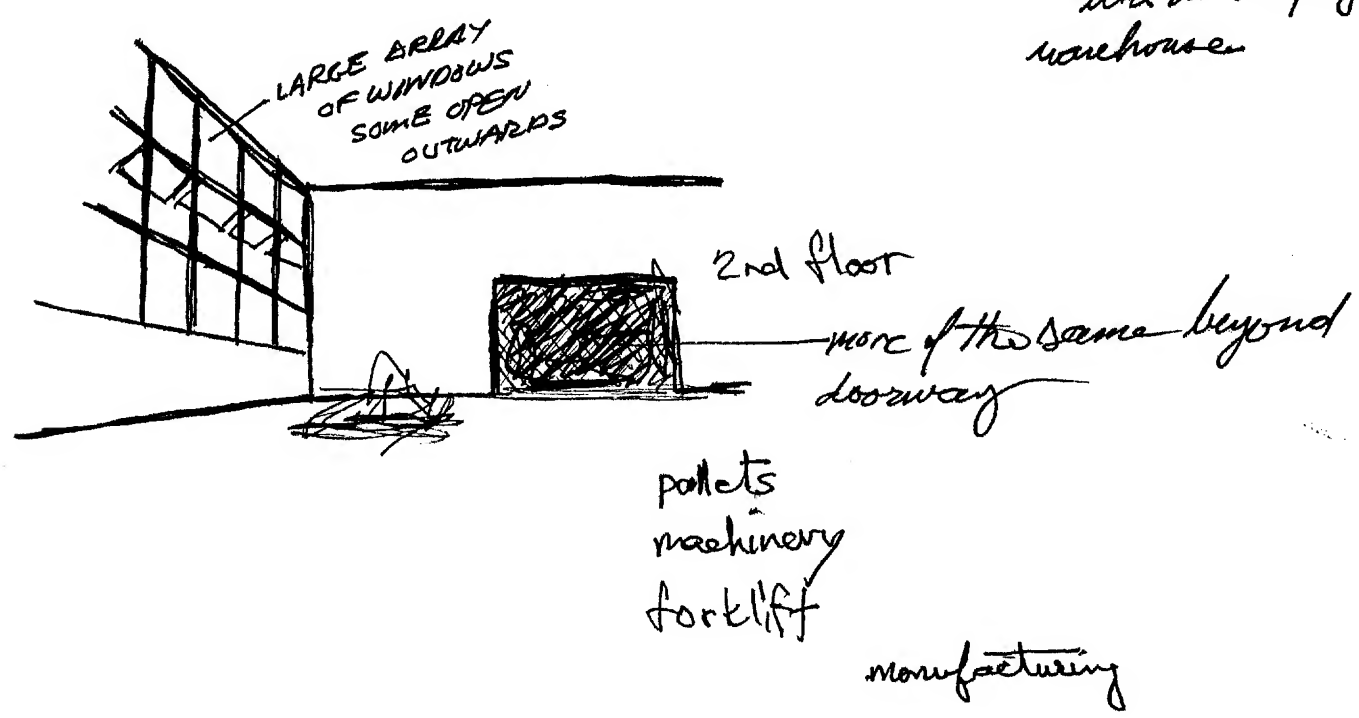 warehouse
LARGE ARRAY
OF WINDOWS
SOME OPEN
OUTWARDS
2nd floor
more of the same beyond
doorway
pallets
machinery
forklift
manufacturing